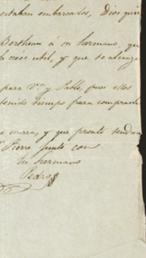 estaban embarcados, Dios quie
á su hermano que
cosa util, y que se alcanza
para V. y Pablo, pues ellos
tenido tiempo para comprarle
y que pronto tendran
Pierro junto con
tu hermano
Pedro